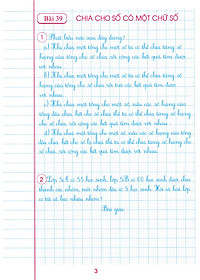 Bài 39
CHIA CHO SỐ CÓ MỘT CHỮ SỐ
1 Phát biểu nào sau đây đúng?
a) Khi chia một tổng cho một số ta có thể chia từng số
hạng của tổng cho số chia, rồi cộng các kết quả tìm được với
nhau.
b) Khi chia một tổng cho một số ta có thể chia từng số
hạng của tổng cho số chia, rồi cộng các kết quả tìm được
với nhau.
c) Khi chia một tổng cho một số, nếu các số hạng của
tổng đều chia hết cho số chia thì ta có thể chia từng số hạng
cho số chia, rồi cộng các kết quả tìm được với nhau.
d) Khi chia một tổng cho một số, nếu các số hạng của
tổng đều chia hết cho số chia thì ta có thể chia từng số hạng
cho số chia, rồi cộng các kết quả tìm được với
nhau.
2 Lớp 5A có 55 học sinh, lớp 5B có 60 học sinh được chia
thành các nhóm, mỗi nhóm đều 5 học sinh. Hỏi cả hai lớp
có tất cả bao nhiêu nhóm?
Bài giải
3